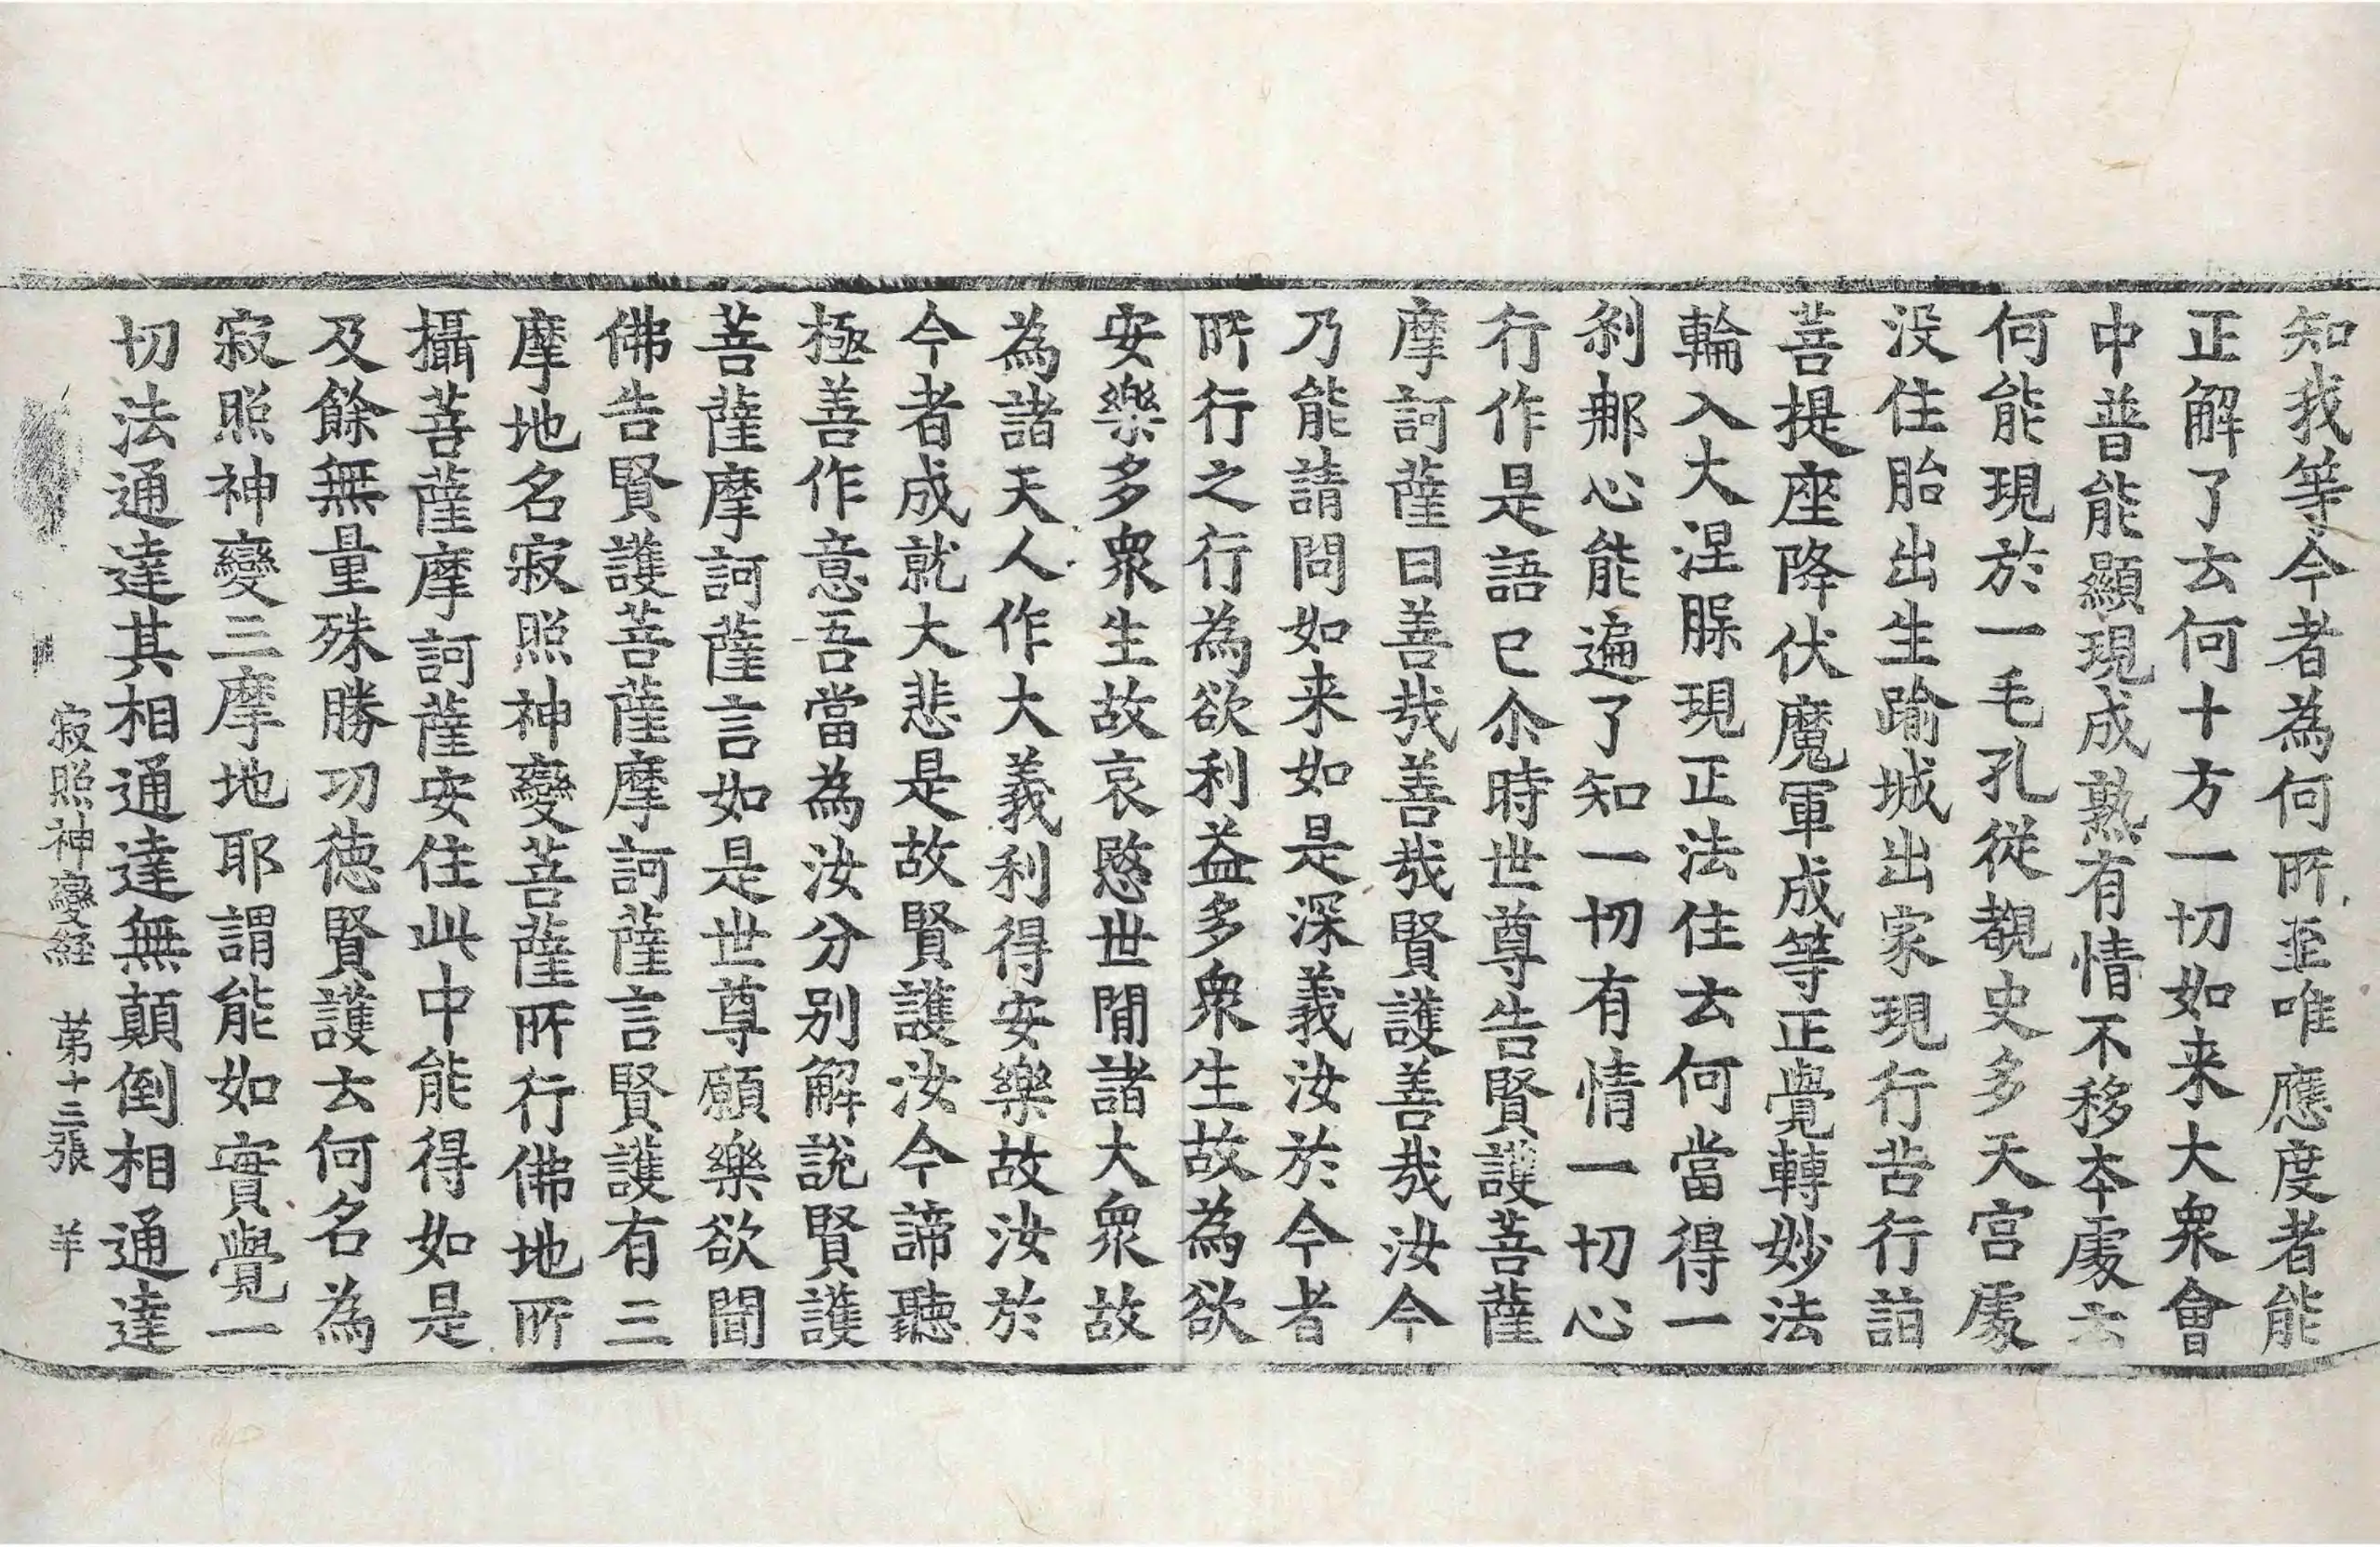 知我等今者為何所趣唯應度者能
正解了云何十方一切如来大衆會
中普能顯現成熟有情不移本處云
何能現於一毛孔從覩史多天宮處
没住胎出生踰城出家現行苦行詣
菩提座降伏魔軍成等正覺轉妙法
輪入大涅脲現正法住云何當得一
剎那心能遍了知一切有情一切心
行作是語已尒時世尊告賢護菩薩
摩訶薩曰善哉善哉賢護善哉汝今
乃能請問如来如是深義汝於今者
所行之行為欲利益多衆生故為欲
安樂多衆生故哀愍世間諸大衆故
為諸天人作大義利得安樂故汝於
今者成就大悲是故賢護汝今諦聽
極善作意吾當為汝分别解說賢護
菩薩摩訶薩言如是世尊願樂欲聞
佛告賢護菩薩摩訶薩言賢護有三
摩地名寂照神變菩薩所行佛地所
攝菩薩摩訶薩安住此中能得如是
及餘無量殊勝功徳賢護云何名為
寂照神變三摩地耶謂能如實覺一
切法通達其相通達無顛倒相通達
寂照神變経 苐十三張 羊